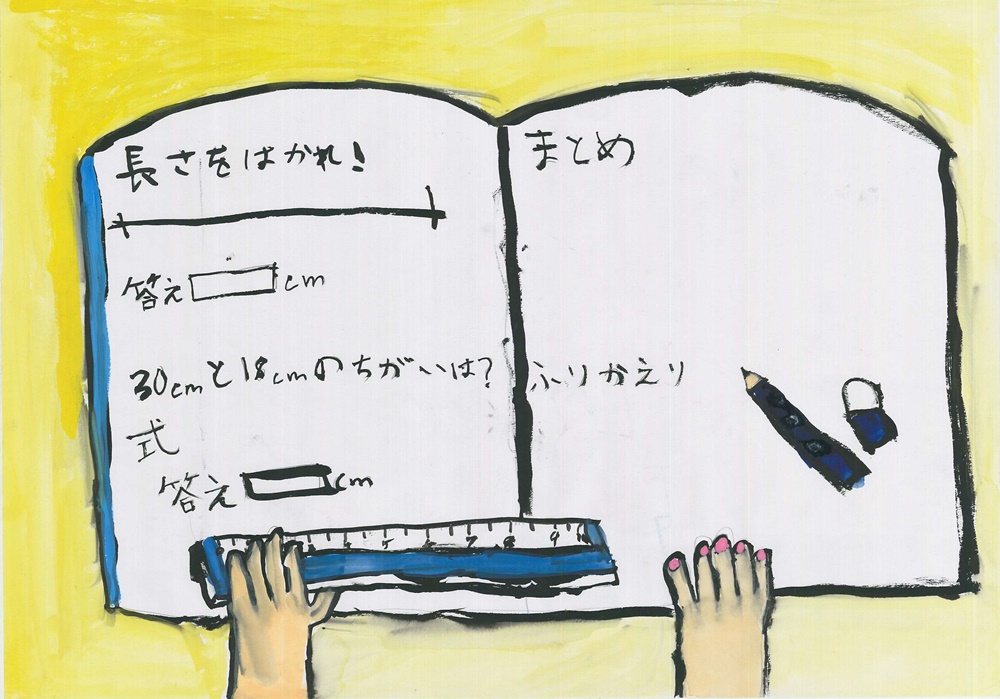 長さをはかれ!
答え cm
30cmと18cmのちがいは?
式
答え cm
まとめ
ふりかえり
7 8 9